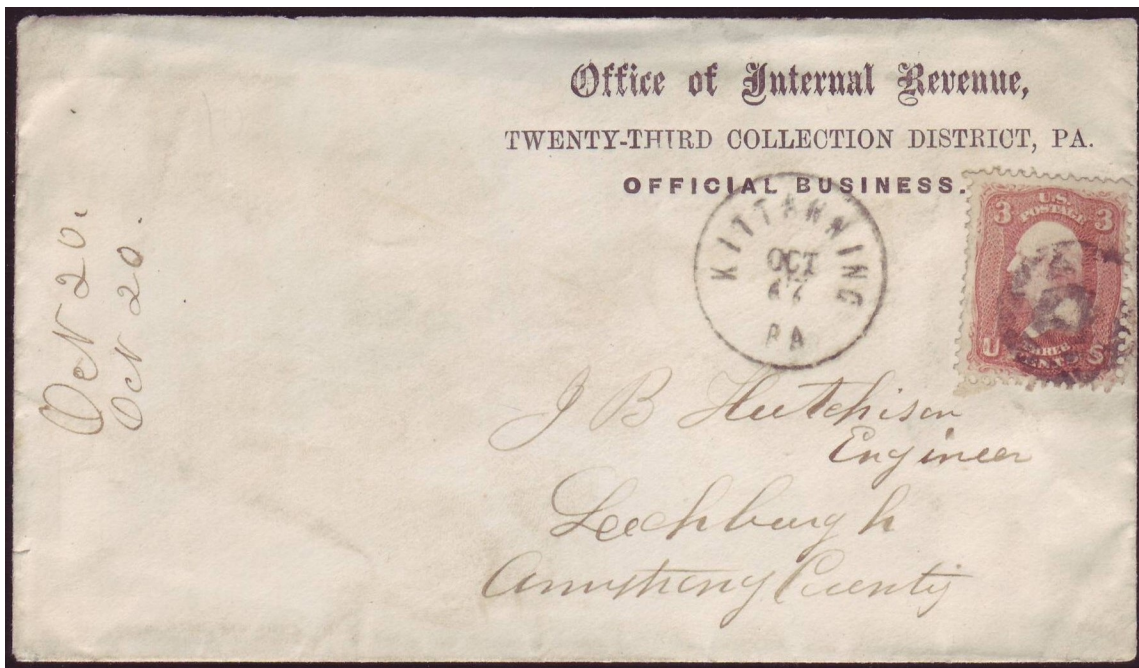 Office of Internal Revenue,
TWENTY-THIRD COLLECTION DISTRICT, PA.
OFFICIAL BUSINESS.
KITTANNING
OCT
PA
3 U.S. POSTAGE 3
U THREE CENTS S
J B Hutchison
Engineer
Leechburgh
Armstrong County
Oct 20.
Oct 20.